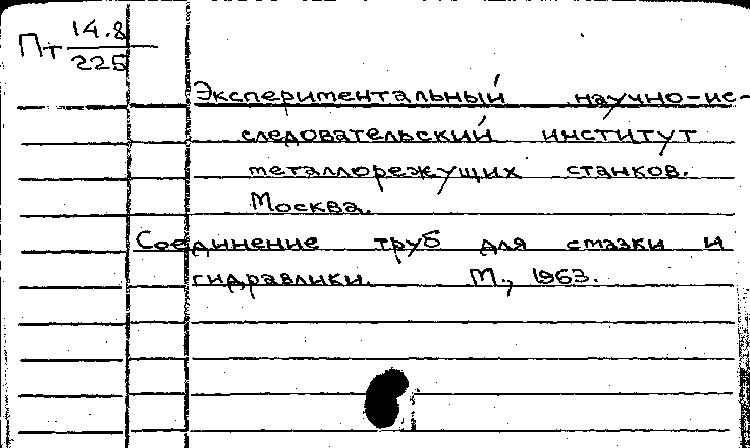 Пт 14.8
225
Экспериментальный научно-ис-
следовательский институт
металлорежущих станков.
Москва.
Соединение труб для смазки и
гидравлики. М., 1963.